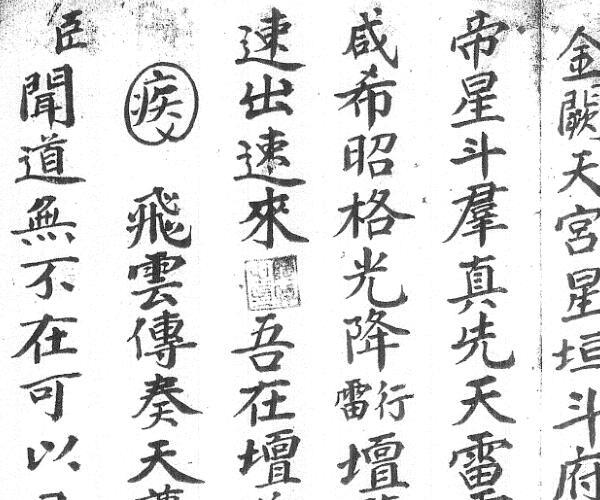 金闕天宮星垣斗府
帝星斗羣真先天雷
咸希昭格光降雷行壇
速出速來 吾在壇
疾 飛雲傳奏天
臣聞道無不在可以